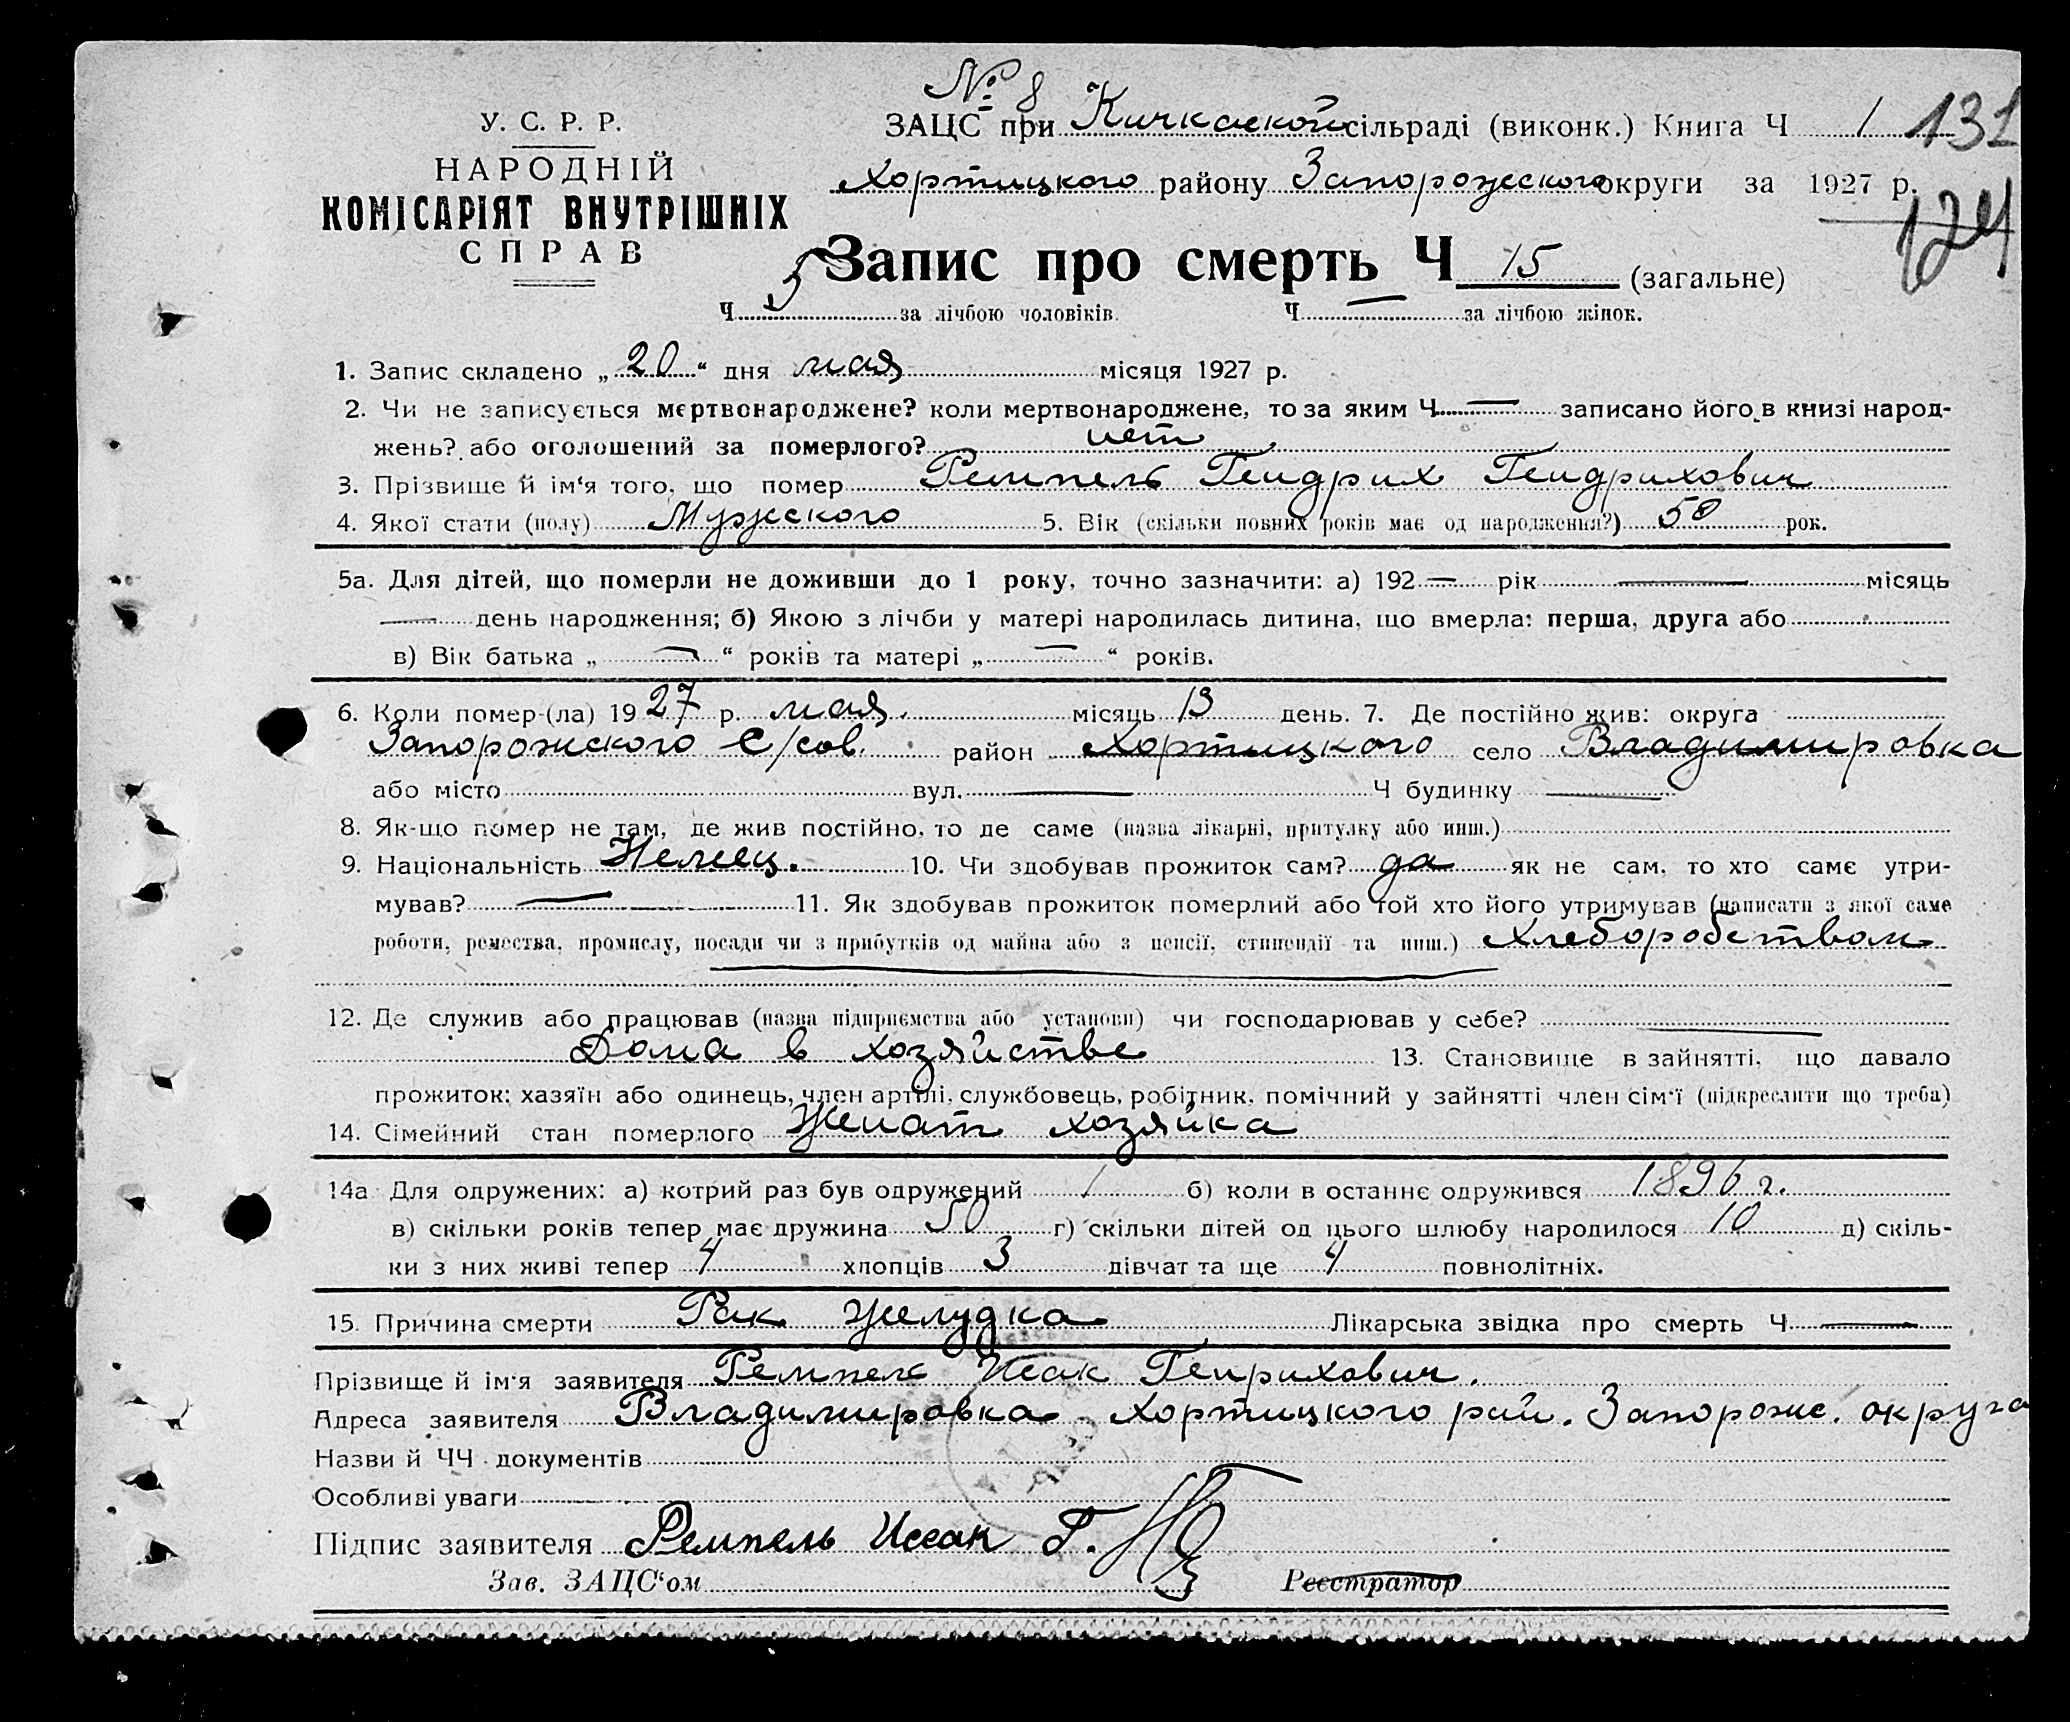 № 8
У. С. Р. Р.
НАРОДНІЙ
КОМІСАРІЯТ ВНУТРІШНІХ
СПРАВ
ЗАЦС при Кичкаской сільраді (виконк.) Книга Ч 1 131
Хортицкого району Запорожского округи за 1927 р.
124
Запис про смерть Ч 15 (загальне)
Ч 5 за лічбою чоловіків. Ч — за лічбою жінок.
1. Запис складено „ 20 “ дня мая місяця 1927 р.
2. Чи не записується мертвонароджене? коли мертвонароджене, то за яким Ч — записано його в книзі народ-
жень? або оголошений за померлого? нет
3. Прізвище й ім‘я того, що помер Ремпель Гендрих Гендрихович
4. Якої стати (полу) Мужеского 5. Вік (скільки повних років має од народження?) 50 рок.
5а. Для дітей, що померли не доживши до 1 року, точно зазначити: а) 192 — рік — місяць
— день народження; б) Якою з лічби у матері народилась дитина, що вмерла: перша, друга або
в) Вік батька „ — “ років та матері „ — “ років.
6. Коли помер-(ла) 1927 р. мая місяць 13 день. 7. Де постійно жив: округа
Запорожского С/сов. район Хортицкого село Владимировка
або місто вул. — Ч будинку —
8. Як-що помер не там, де жив постійно, то де саме (назва лікарні, притулку або инш.)
9. Національність Немец. 10. Чи здобував прожиток сам? да як не сам, то хто саме утри-
мував? — 11. Як здобував прожиток померлий або той хто його утримував (написати з якої саме
роботи, ремества, промислу, посади чи з прибутків од майна або з пенсії, стипендії та инш.) Хлеборобством
12. Де служив або працював (назва підприємства або установи) чи господарював у себе? —
Дома в хозяйстве 13. Становище в зайнятті, що давало
прожиток: хазяїн або одинець, член артілі, службовець, робітник, помічний у зайнятті член сім‘ї (підкреслити що треба)
14. Сімейний стан померлого Женат хозяйка
14а Для одружених: а) котрий раз був одружений 1 б) коли в останнє одружився 1896 г.
в) скільки років тепер має дружина 50 г) скільки дітей од цього шлюбу народилося 10 д) скіль-
ки з них живі тепер 4 хлопців 3 дівчат та ще 4 повнолітніх.
15. Причина смерти Рак желудка Лікарська звідка про смерть Ч —
Прізвище й ім‘я заявителя Ремпель Исак Генрихович.
Адреса заявителя Владимировка Хортицкого рай. Запорож. округа
Назви й ЧЧ документів
Особливі уваги
Підпис заявителя Ремпель Иссак Г.
Зав. ЗАЦС‘ом Реєстратор